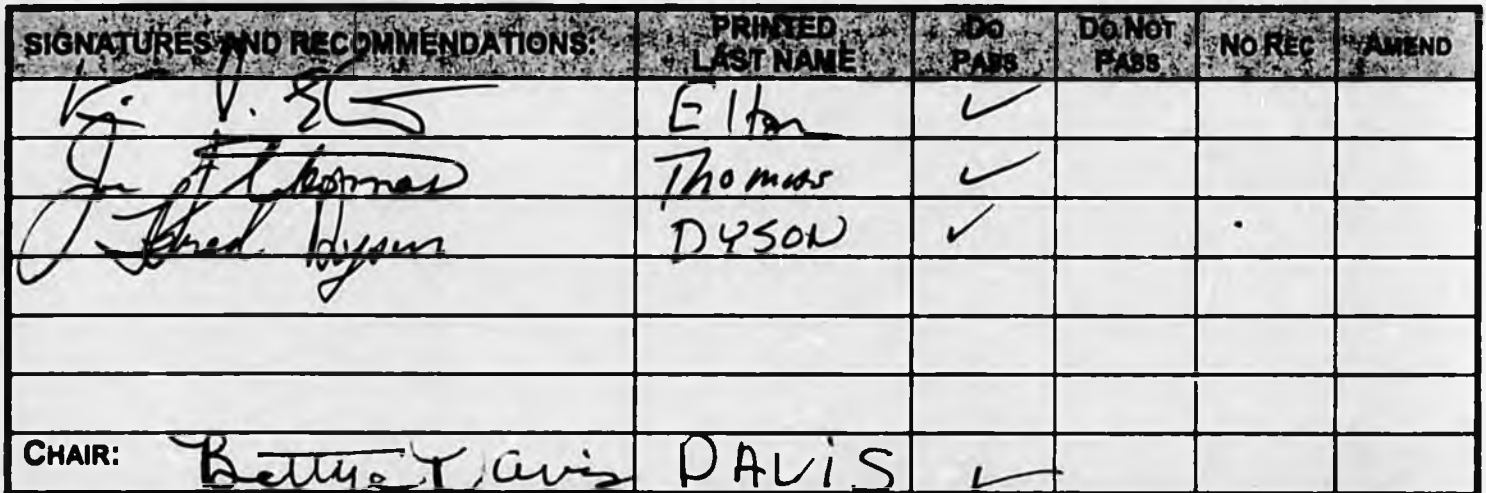 SIGNATURES AND RECOMMENDATIONS: PRINTED LAST NAME DO PASS DO NOT PASS NO REC AMEND
Elton ✓
Joe Thomas Thomas ✓
Fred Dyson DYSON ✓
CHAIR: Bettye Davis DAVIS ✓